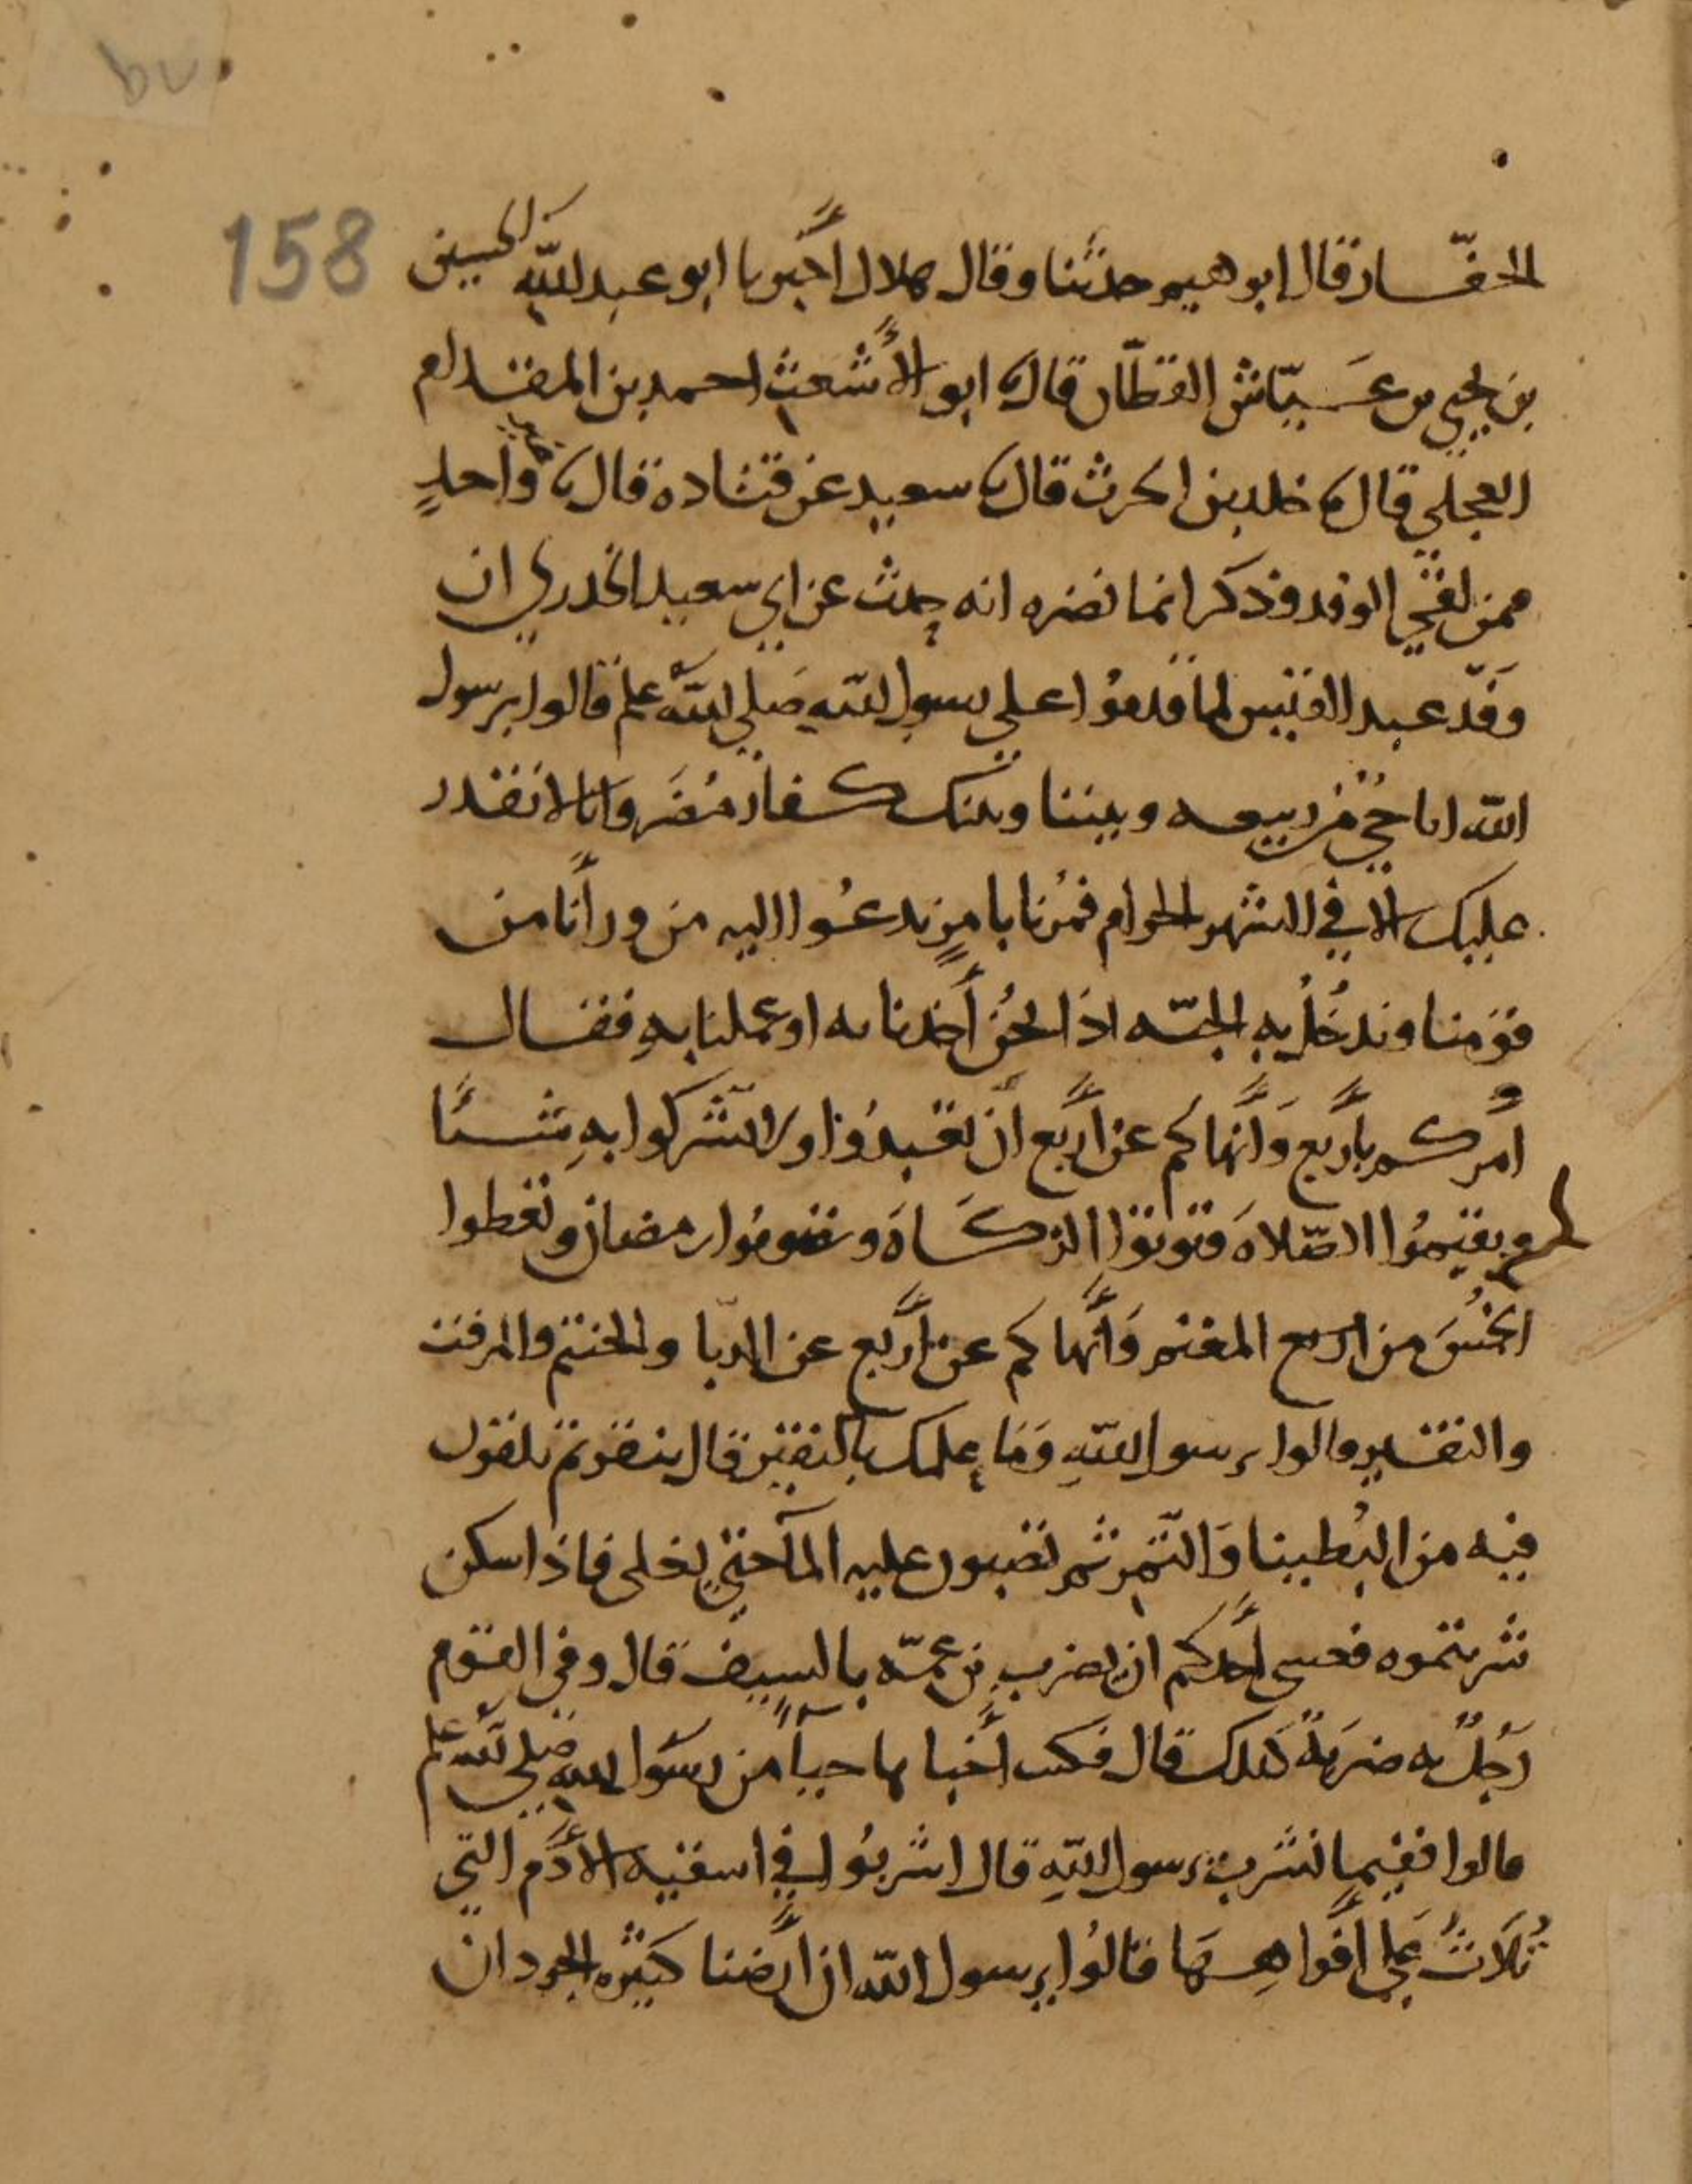 158
الحفّار قال ابرهيم حدثنا وقال هلال أخبرنا ابو عبد الله الحسين
بن يحيى بن عَيّاش القطّان قال ثنا ابو الأشعث احمد بن المقدام
العجلي قال ثنا خلد بن الحرث قال ثنا سعيد عن قتادة قال ثنا واحدٍ
ممن لقي الوفد وذكر ابا نضره انه حدث عن ابي سعيد الخدري ان
وَفد عبد القيس لما قدمُوا على رسول الله صَلى الله علم قالوا يرسول
الله انا حي من ربيعه وبيننا وبينك كفار مُضَر وانا لا نقدر
عليك الا في الشهر الحرام فمُرنا بامرٍ ندعُوا اليه من ورأنا من
قومنا وندخُل به الجنّه اذا نحنُ أخذنا به او عملنا بهِ فقال
أمركم بأربع وَأنهاكم عن أربع أن تعبدُوا ولا تشركوا بهِ شيئًا
وتقيمُوا الصّلاةَ وتوتوا الزكَاةَ وتصومُوا رمضان وتعطوا
الخمُسَ من المغنم وَأنهاكم عن أربع عن الدّبا والحنتم والمزفت
والنقير قالوا يرسول اللهِ وَمَا علمك بالنقير قال ثم تلقون
فيه من القُطيعا وَالتَّمر ثم تصبون عليه المآ حتى يغلى فاذا سكن
شربتموه فعسى أحدكم ان يضرب بن عمّه بالسيف قال وفي القوم
رَجُلٌ به ضربةٌ كذلك قال فكنت أخباها حيآءً من رسول الله صَلى الله علم
قالوا ففيما نشرب يرسول اللهِ قال اشربُوا في اسقيه الأدَم التي
تُلاث على أفواهِهَا قالُوا يرسول الله ان أرضنا كثيره الجرذان